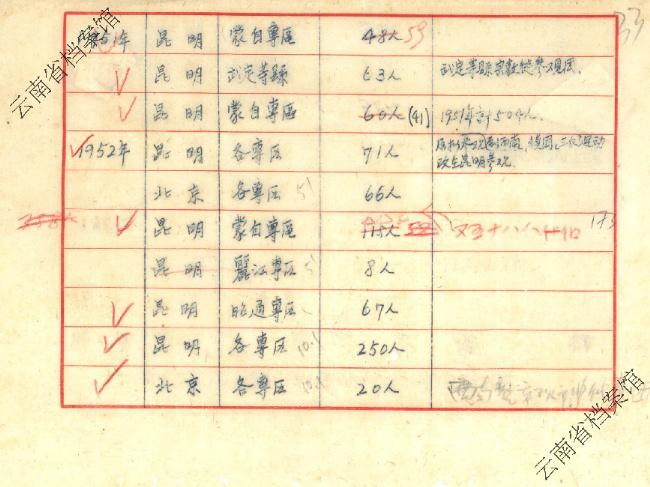 云南省档案馆
33
1951年 昆明 蒙自專區 48人 59
昆明 武定等縣 63人 武定等縣宗教徒参观团.
昆明 蒙自專區 60人 (41) 1951年計504人.
1952年 昆明 各專区 71人
改在昆明参观
北京 各專區 51 66人
昆明 蒙自專區 115人 173
昆明 麗江專区 8人
昆明 昭通專区 67人
昆明 各專区 10.1 250人
北京 各專区 20人
云南省档案馆